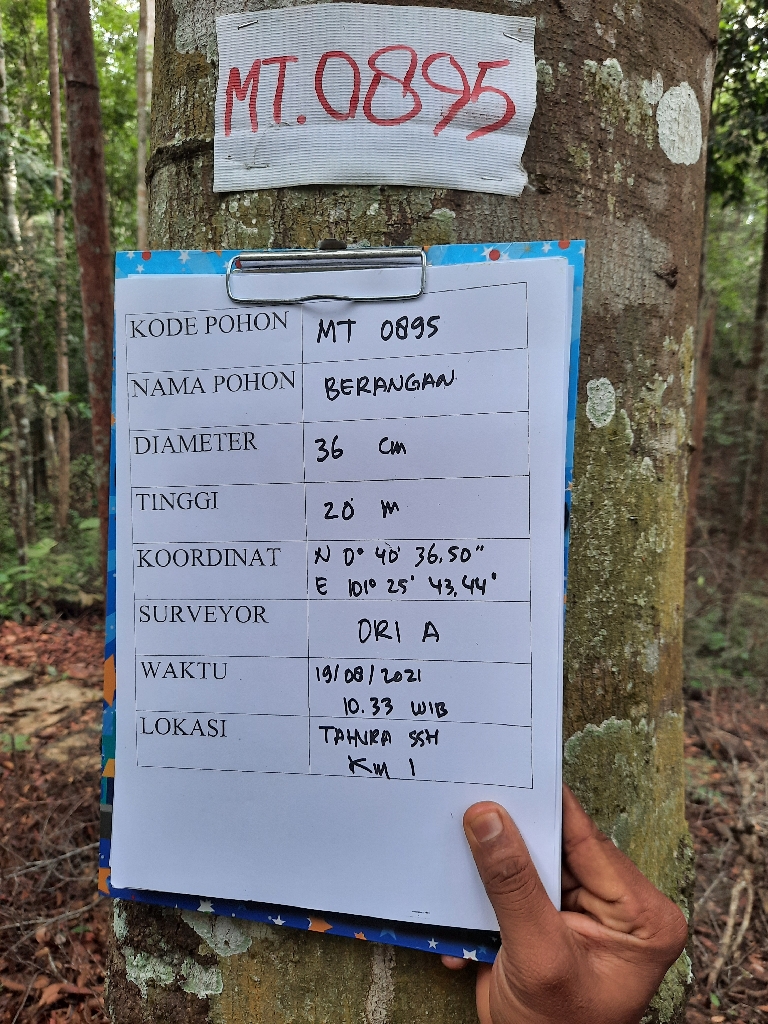 MT.0895
KODE POHON MT 0895
NAMA POHON BERANGAN
DIAMETER 36 cm
TINGGI 20 m
KOORDINAT N 0° 40' 36,50"
E 101° 25' 43,44"
SURVEYOR ORI A
WAKTU 19/08/2021
10.33 WIB
LOKASI TAHURA SSH
Km 1